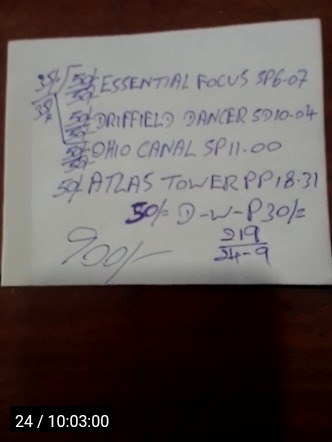 50/- ESSENTIAL FOCUS SP6.07
50/- DRIFFIELD DANCER SD10.04
50/- OHIO CANAL SP11.00
50/- ATLAS TOWER PP18.31
50/= D-W-P30/=
900/-
219
34-9
24 / 10:03:00